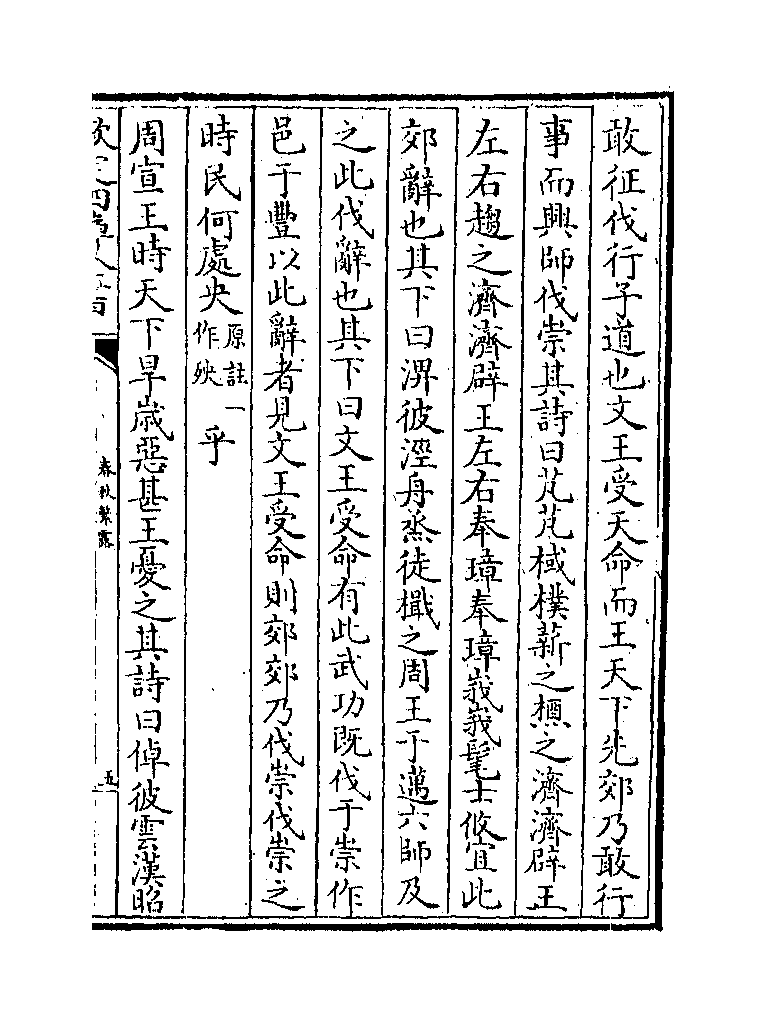 敢征伐行子道也文王受天命而王天下先郊乃敢行
事而興師伐崇其詩曰芃芃棫樸薪之槱之濟濟辟王
左右趨之濟濟辟王左右奉璋奉璋峩峩髦士攸宜此
郊辭也其下曰淠彼涇舟烝徒檝之周王于邁六師及
之此伐辭也其下曰文王受命有此武功既伐于崇作
邑于豐以此辭者見文王受命則郊郊乃伐崇伐崇之
時民何處央原註一作殃乎
周宣王時天下旱歳惡甚王憂之其詩曰倬彼雲漢昭
春秋繁露
五